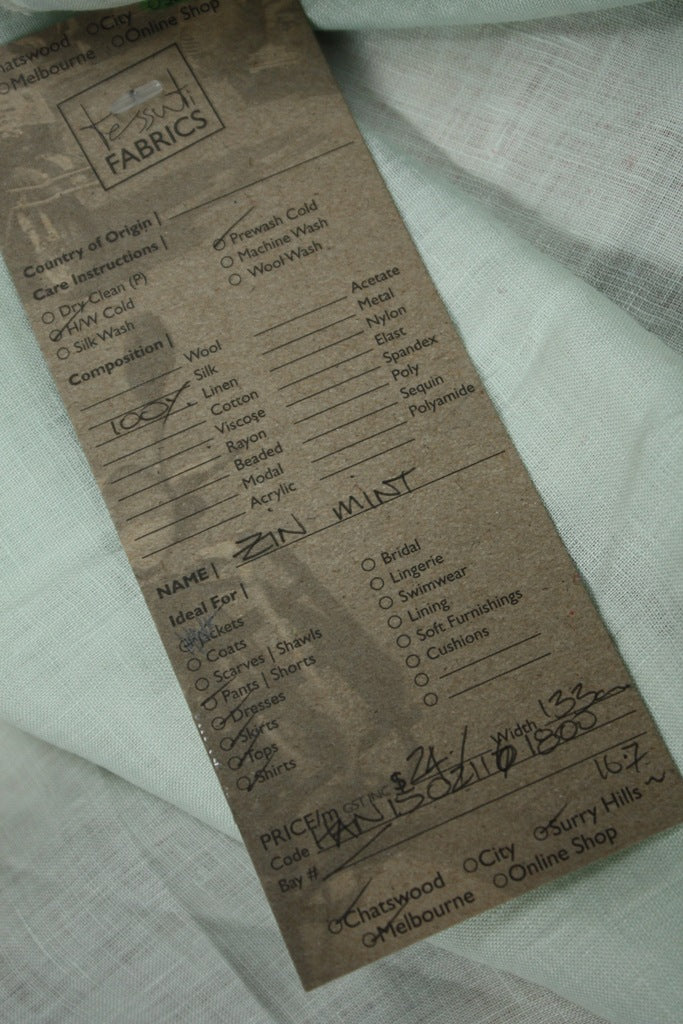 Chatswood City
Melbourne Online Shop
tessuti
FABRICS
Country of Origin |
Care Instructions |
Dry Clean (P) Prewash Cold
H/W Cold Machine Wash
Silk Wash Wool Wash
Composition |
Wool Acetate
Silk Metal
100% Linen Nylon
Cotton Elast
Viscose Spandex
Rayon Poly
Beaded Sequin
Modal Polyamide
Acrylic
NAME | ZIN MINT
Ideal For |
Jackets Bridal
Coats Lingerie
Scarves | Shawls Swimwear
Pants | Shorts Lining
Dresses Soft Furnishings
Skirts Cushions
Tops
Shirts
PRICE/m GST INC $24/ Width 133cm
Code
Bay # 16.7
Chatswood City Surry Hills
Melbourne Online Shop